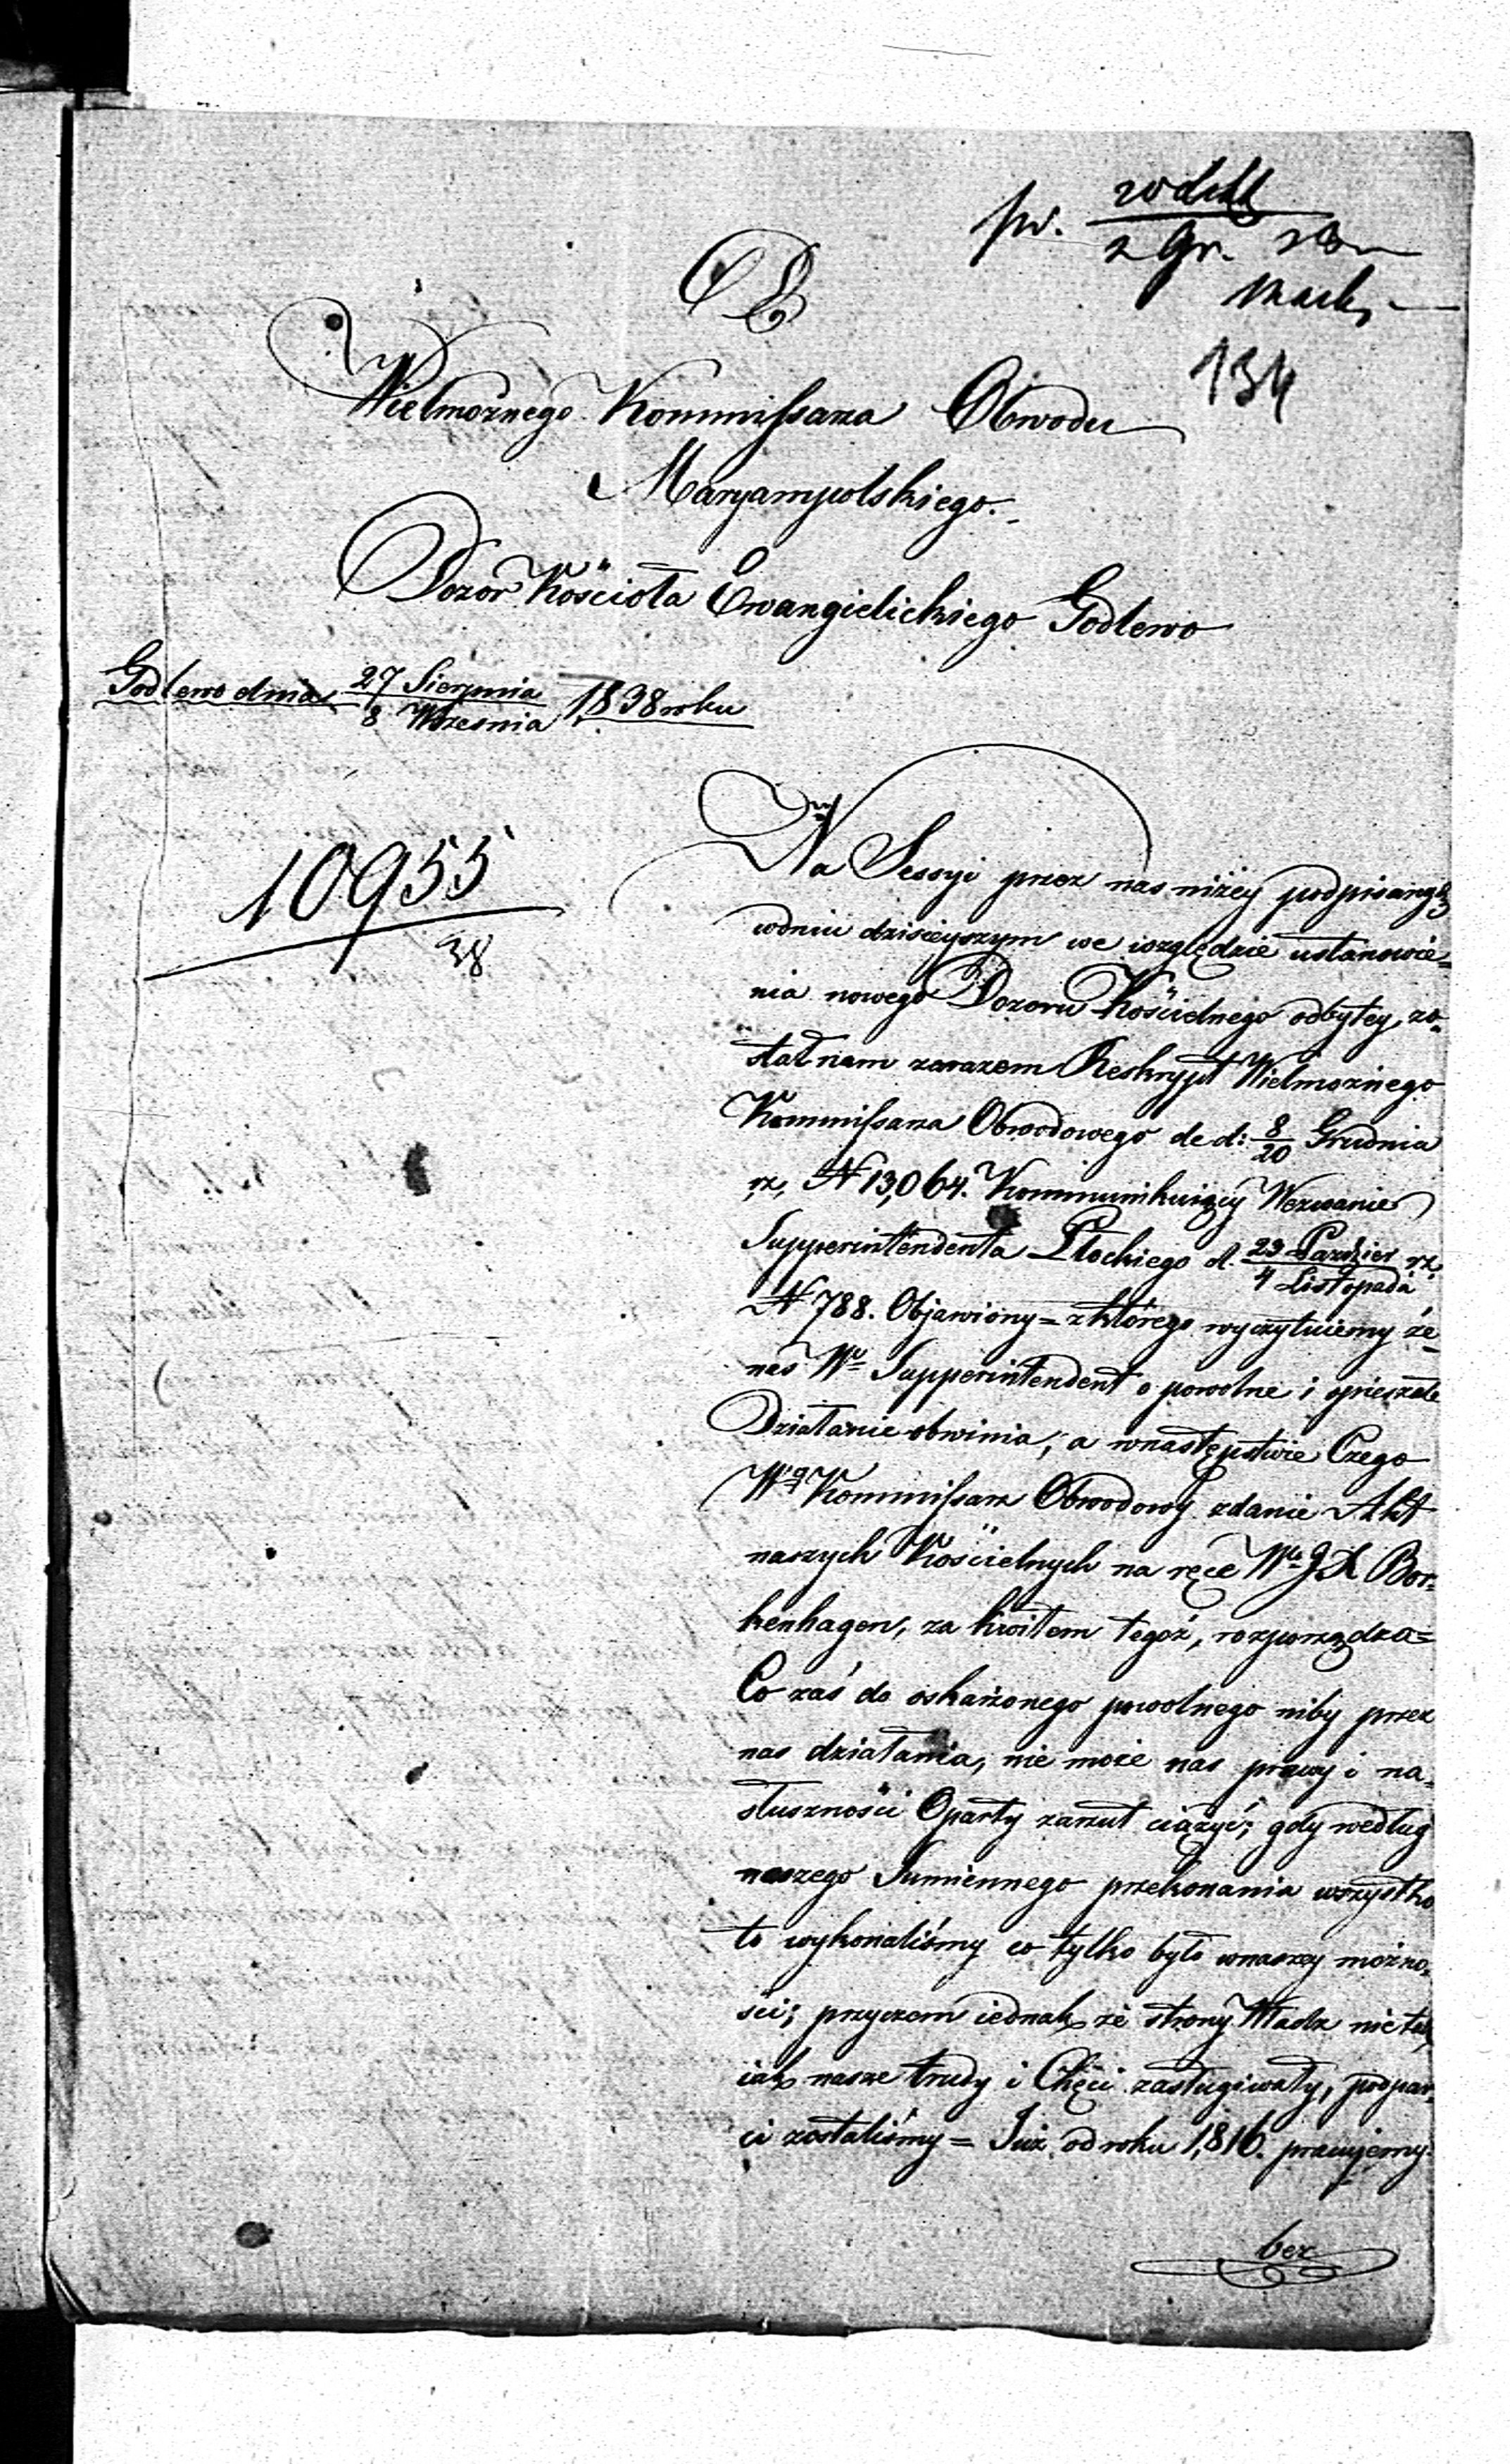 pr.
2 Gr.
134
Do
Wielmożnego Kommissarza Obwodu
Maryampolskiego.
Dozór Kościoła Ewangielickiego Godlewo
Godlewo dnia 27 Sierpnia / 8 Września 1838 roku
10955
38
Na Sessyi przez nas niżey podpisanych
wdniu dzisieyszym we względzie ustanowie=
nia nowego Dozoru Kościelnego odbytey, zo=
stał nam zarazem Reskrypt Wielmożnego
Kommissarza Obwodowego de d: 8/20 Grudnia
rz, N 13,064. Kommunikuiący Wezwanie
Supperintendenta Płockiego d. 23 Paździer / 4 Listopada rz,
N 788. Objawiony = zktórego wyczytuiemy że
nas Wy Supperintendent o powolne i opieszałe
Działanie obwinia, a wnastępstwie Czego
Wy Kommissarz Obwodowy zdanie Akt
naszych Kościelnych na ręce Wgo JX Bor=
kenhagen, za kwitem tegoż, rozporządza=
Co zaś do oskarżonego powolnego niby przez
nas działania, nie może nas prawy i na
słuszności Oparty zarzut ciążyć; gdy według
naszego Sumiennego przekonania wszystko
to wykonaliśmy co tylko było wnaszey możno=
ści; przyczem iednak że strony Władz nie tak
iak nasze trudy i Chęci zasługiwały, podpar=
ci zostaliśmy = Już od roku 1,816. pracujemy
bez